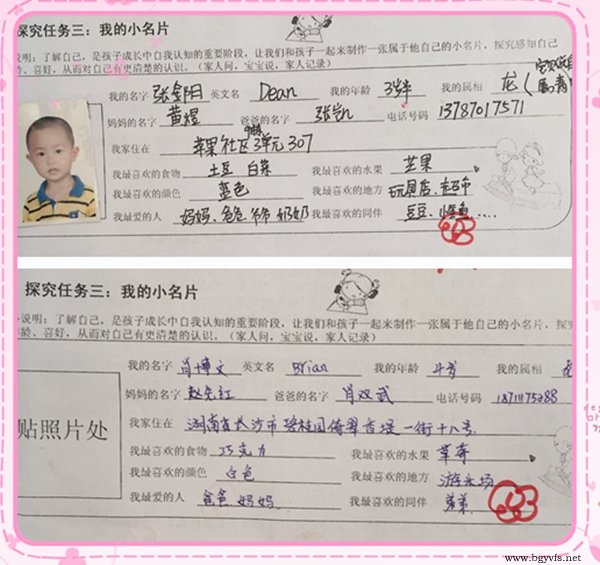 探究任务三：我的小名片
说明：了解自己，是孩子成长中自我认知的重要阶段，让我们和孩子一起来制作一张属于他自己的小名片，探究感知自己
年龄、喜好，从而对自己有更清楚的认识。（家人问，宝宝说，家人记录）
我的名字 英文名 Dean 我的年龄 3岁半 我的属相 龙（
妈妈的名字 黄煜 爸爸的名字 电话号码 13787017571
我家住在 苹果社区 3单元 307
我最喜欢的食物 土豆 白菜 我最喜欢的水果 芒果
我最喜欢的颜色 蓝色 我最喜欢的地方 玩具店、超市
我最爱的人 妈妈、爸爸、爷爷、奶奶 我最喜欢的同伴 豆豆、
探究任务三：我的小名片
说明：了解自己，是孩子成长中自我认知的重要阶段，让我们和孩子一起来制作一张属于他自己的小名片，探究
年龄、喜好，从而对自己有更清楚的认识。（家人问，宝宝说，家人记录）
我的名字 肖博文 英文名 Brian 我的年龄 4岁 我的属相
妈妈的名字 爸爸的名字 肖双武 电话号码
我家住在 湖南省长沙市碧桂园倚翠香堤一街十八号
贴照片处
我最喜欢的食物 巧克力 我最喜欢的水果 草莓
我最喜欢的颜色 白色 我最喜欢的地方 游乐场
我最爱的人 爸爸、妈妈 我最喜欢的同伴 弟弟
www.bgyvfs.net